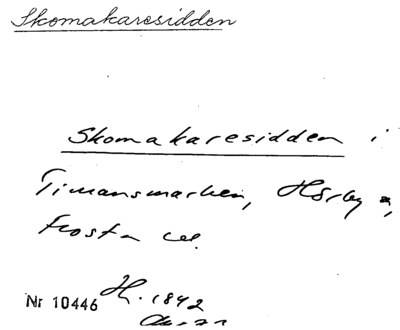 Skomakaresidden
Skomakaresidden i
Timansmarken, Hörby s,
Frosta
Nr 10446 1842